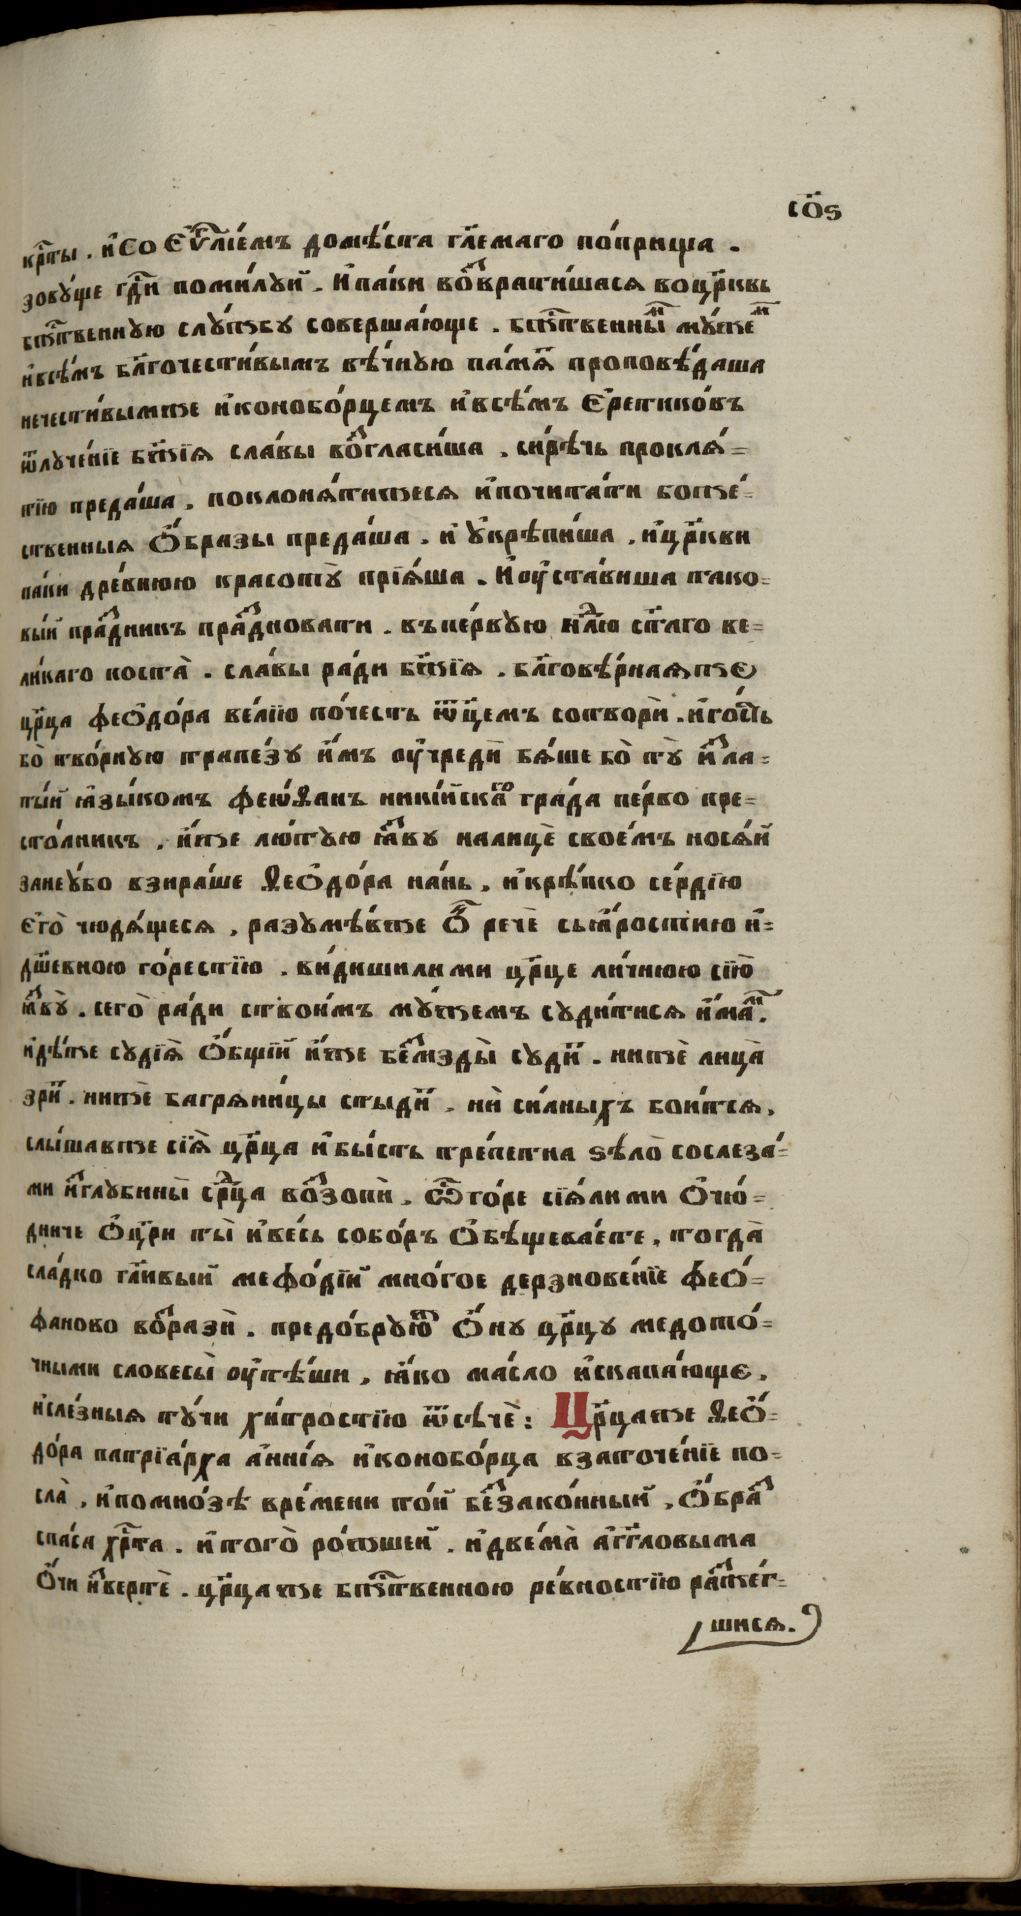 со҃ѕ
кр҃ты . и҆ со є҆ѵⷢ҇лїемъ домѣ́ста гл҃емаго по́прища .
зову́ще гд҇и поми́луй . И҆ па́ки во́ⷥвратишася во цр҃ковь
бж҃твенную слу́жбу соверша́юще . бж҃твенныⷨ мꙋ́жеⷨ
и҆ всѣ́мъ бл҃гочести́вымъ вѣ́чную па́мⷮѧ проповѣ́даша
нечести́вымже и҆конобо́рцемъ и҆ всѣ́мъ є҆ретико́въ
ѿлуче́нїе бж҃їѧ сла́вы во́ⷥгласиша , си́рѣчь проклѧ́-
тїю преда́ша . поклонѧ́тижесѧ и҆ почита́ти боже́-
ственныѧ ѻ҆́бразы преда́ша . и҆ ᲂу҆крѣпи́ша , и҆ цр҃кви
па́ки дре́внюю красоту̀ прїѧ́ша . И҆ ᲂу҆ста́виша тако-
вы́й пра́ⷥдникъ пра́ⷥдновати . въ пе́рвую нⷣ҇лю ст҃аго ве-
ли́каго поста̀ . сла́вы ра́ди бж҃їѧ . бл҃говѣ́рнаѧже
цр҃ца феѻдо́ра ве́лїю по́честь ѿц҃емъ сотворѝ . и҆ го́сть
бо̀ тво́рную трапе́зу и҆́мъ ᲂу҆чредѝ бѧ́ше бо̀ ту̀ и҆ⷥла-
ты́й ꙗ҆зы́комъ феѡѳанъ нике́йскаⷢ҇ гра́да перво пре-
сто́лникъ , и҆́же лю́тую ꙗ҆́ⷥву на лицѐ свое́мъ носѧ́й
зане ᲂу҆бо взира́ше ѳеѻдо́ра на́нь , и҆ крѣ́пко се́рдїю
є҆го̀ чюдѧ́щесѧ , разумѣ́вже ѻ҆́ⷩ речѐ съ ꙗ҆́ростию и҆
дш҃евною го́рестїю . ви́диши ли ми цр҃це ли́чнюю сїю̀
ꙗ҆́ⷥву̀ . сего̀ ра́ди с твои́мъ му́жемъ суди́тисѧ и҆́маⷨ .
и҆дѣ́же судїѧ̀ ѻ҆́бщїй и҆́же беⷥмзды̀ суди́ⷮ . нижѐ лица̀
зри́ⷮ . нижѐ багрѧни́цы стыди́ⷮ , нѝ си́лныхъ бои́тсѧ ,
слы́шавже сїѧ̀ цр҃ца и҆ бы́сть тре́петна ѕѣло̀ со слеза́-
ми и҆ⷥ глубины̀ срⷣ҇ца во́ⷥзопѝ , Ѽ го́ре сїѧ́ ли ми ѻ҆ чю́-
дниче ѻ҆ц҃ри ты̀ и҆ ве́сь собо́ръ ѻ҆бѣщева́ете , тогда̀
сла́дко гл҃ивый мефо́дїй мно́гое дерзнове́нїе феѻ́-
фаново во́ⷥрази́ . предо́бруюⷤ ѻ҆́ну цр҃цу медото́-
чными словесы̀ ᲂу҆тѣ́ши , ꙗ҆́ко ма́сло и҆скапа́юще ,
и҆ сле́зныѧ ту́чи хи́тростїю ѿсѣчѐ : Цр҃цаже ѳеѻ́-
до́ра патрїа́рха а҆ннїѧ и҆конобо́рца в заточе́нїе по-
сла̀ , и҆ по мно́зѣ вре́мени то́й беⷥзако́нный , ѻ҆́браⷥ
спа́са хр҃та . и҆ того̀ ро́ждшей . и҆ двема̀ а҆́гг҃ловыма
ѻ҆́чи и҆ⷥвертѐ . цр҃цаже бж҃твенною ре́вностїю раⷥже́г-
шисѧ .